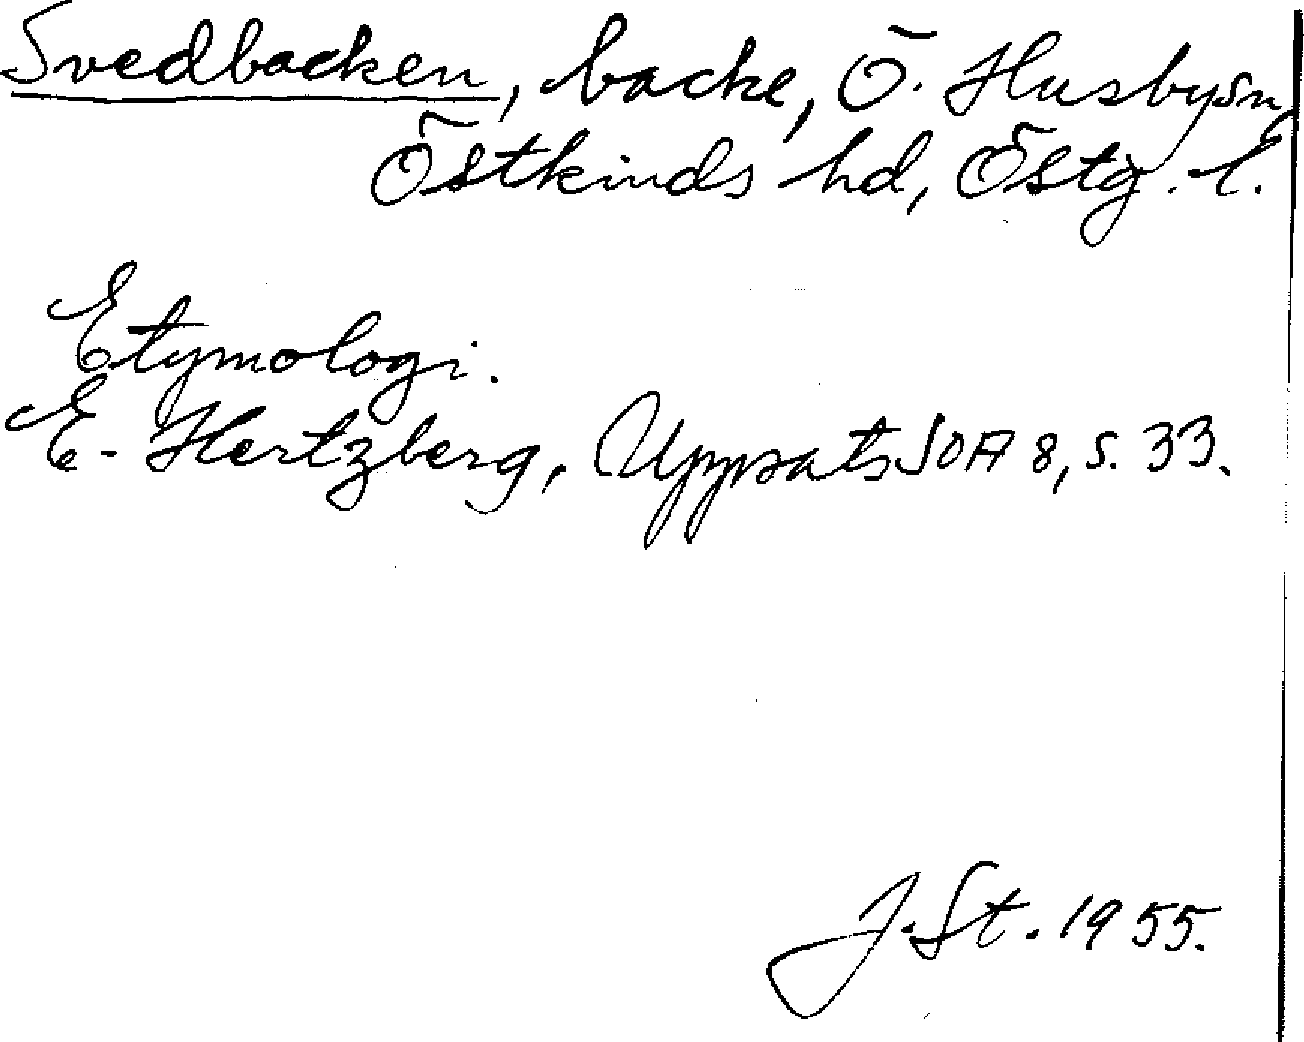 Svedbacken, backe, Ö. Husby sn,
Östkinds hd, Östg. l.
Etymologi.
E. Hertzberg, Uppsats SOA 8, s. 33.
J. St. 1955.